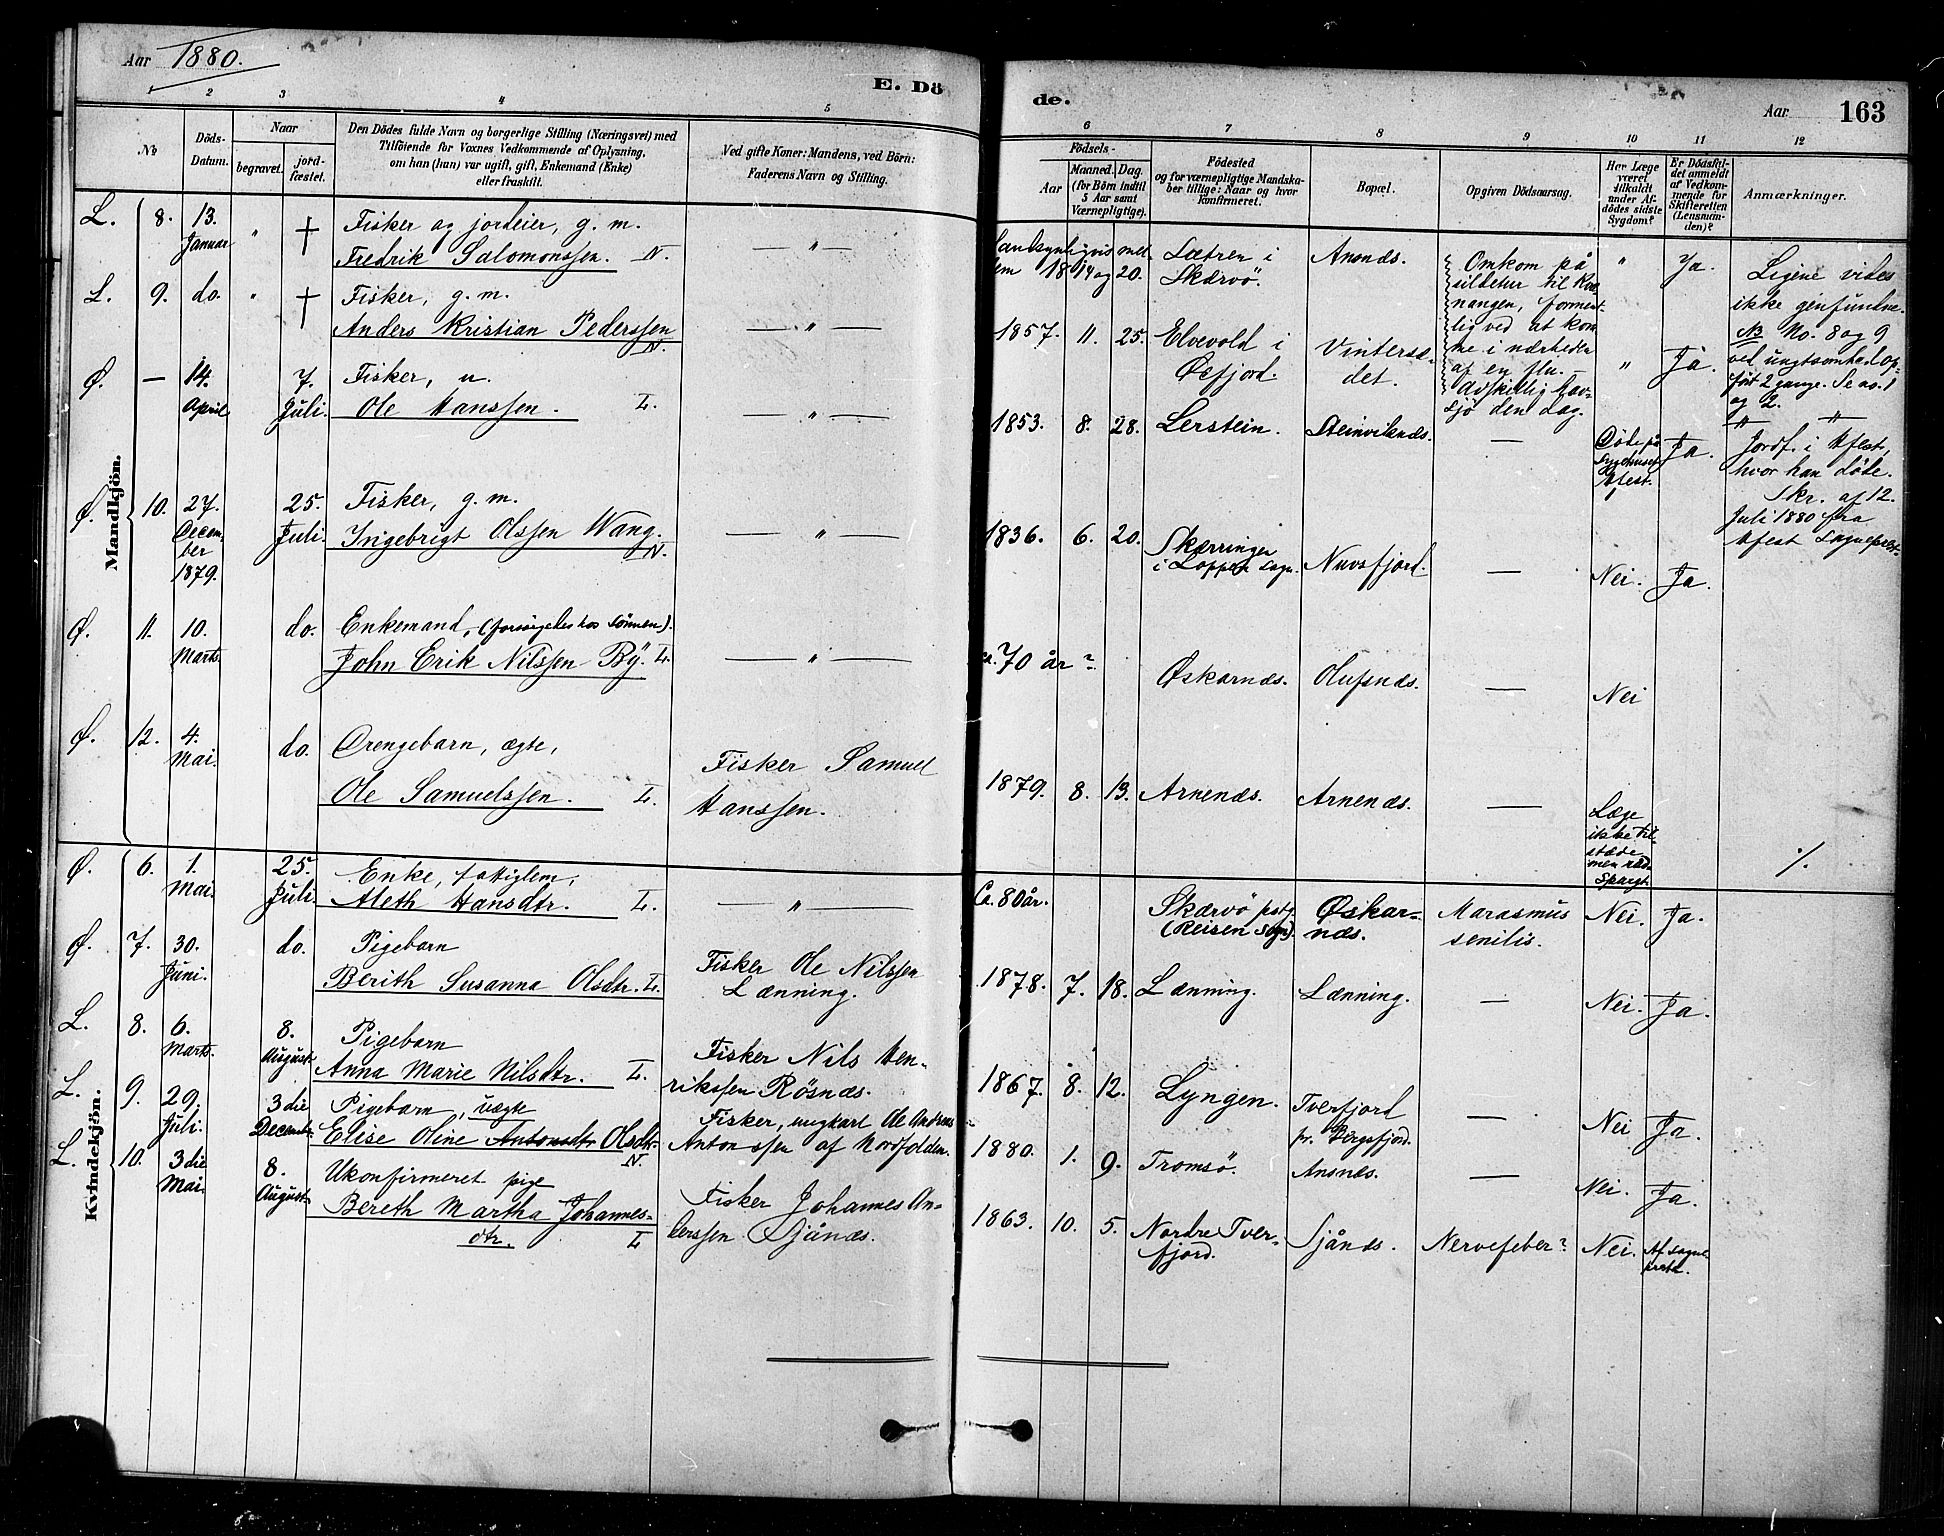 Aar 1880.
E. Dö
de.
Aar 163
2 3 4 5
6 7 8 9 10 11 12
No
Döds-Datum.
Naar
begravet.
jord-fæstet.
Den Dödes fulde Navn og borgerlige Stilling (Næringsvei) med
Tilföiende for Voxnes Vedkommende af Oplysning,
om han (hun) var ugift, gift, Enkemand (Enke)
eller fraskilt.
Ved gifte Koner: Mandens, ved Börn:
Faderens Navn og Stilling.
Födsels-
Aar
Maaned. Dag.
(for Börn indtil
5 Aar samt
Værnepligtige).
Födested
og for værnepligtige Mandska-
ber tillige: Naar og hvor
konfirmeret.
Bopæl.
Opgiven Dödsaarsag.
Har Læge
været
tilkaldt
under Af-
dödes sidste
Sygdom?
Er Dödsfal-
det anmeldt
af Vedkom-
mende for
Skifteretten
(Lensman-
den)?
Anmærkninger.
Mandkjön.
L. 8. 13. Januar " † Fisker og jordeier, g. m.
Fredrik Salomonssen. N. — " —
Sandsynligvis mel-
lem 1819 og 20. Lætren i
Skærvö. Ansnæs. " Ja.
L. 9. do. " † Fisker, g. m.
Anders Kristian Pederssen N. — " —
1857. 11. 25. Elvevold i
Öxfjord. Vintersæ-
det. " Ja.
Omkom på
sildetur til Kvæ-
nangen, forment-
lig ved at kom-
me i nærheden
af en flu. —
Avskellig hav-
sjö den dag.
Ligene vides
ikke genfundne.
NB No. 8 og 9
ved uagtsomhed op-
fört 2 gange. Se no. 1
og 2.
Ø. — 14. April 7. Juli. Fisker, u.
Ole Hanssen. L. — " —
1853. 8. 28. Lerstein. Steinviknæs. — Döde på
Sygehuset
Hfest. Ja.
" "
Jordf. i Hfest,
hvor han döde.
Skr. af 12.
Juli 1880 fra
Hfest Sogneprest.
Ø. 10. 27. Decem-
ber
1879. 25. Juli. Fisker, g. m.
Ingebrigt Olssen Wang. N. — " —
1836. 6. 20. Skærringen
i Loppen sogn. Nuvsfjord. — Nei. Ja.
Ø. 11. 10. Marts. do. Enkemand, (forsörgedes hos sönnen).
John Erik Nilssen Bÿ. L. — " —
ca. 70 år? Øskarnæs. Olufsnæs. — Nei
Ø. 12. 4. Mai. do. Drengebarn, ægte,
Ole Samuelssen. L. Fisker Samuel
Hanssen.
1879. 8. 13. Arnenæs. Arnenæs. — Læge
ikke til-
stæde
men råd-
spurgt.
Kvindekjön.
Ø. 6. 1. Mai. 25. Juli. Enke, fattiglem,
Aleth Hansdtr. L. — " —
Ca. 80 år. Skærvö pstg.
(Reisen sogn). Øskar-
næs. Marasmus
senilis. Nei. Ja. ./.
Ø. 7. 30. Juni. do. Pigebarn
Berith Susanna Olsdtr. L. Fisker Ole Nilssen
Lænning.
1878. 7. 18. Lænning. Lænning. — Nei. Ja.
L. 8. 6. Marts. 8. August. Pigebarn
Anna Marie Nilsdtr. L. Fisker Nils Hen-
rikssen Rösnæs.
1867. 8. 12. Lyngen. Tverfjord
pr. Bergsfjord. — Nei Ja.
L. 9. 29. Juli. 3die Decemb. Pigebarn, uægte
Elise Oline Antonsdtr Olsdtr. N. Fisker, ungkarl Ole Andreas
Antonssen af Nordfolden.
1880. 1. 9. Tromsö. Ansnæs. — Nei. Ja.
L. 10. 3die Mai. 8. August. Ukonfirmeret pige
Bereth Martha Johannes-
dtr. L Fisker Johannes An-
derssen Sjånæs.
1863. 10. 5. Nordre Tver-
fjord. Sjånæs. Nervefeber? Nei. Af sogne-
prest.